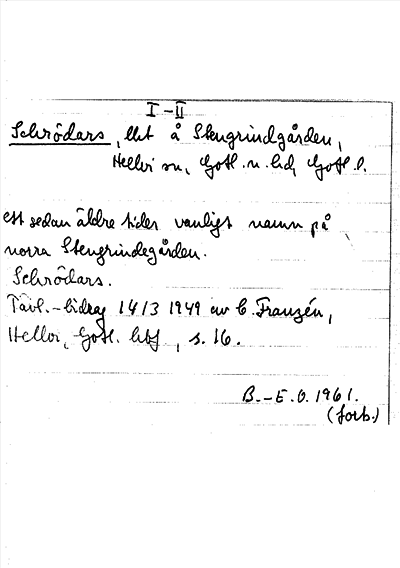 I-II
Schrödars, till å Stengrindgården,
Hellvi sn, Gotl. n. hd, Gotl. l.
ett sedan äldre tider vanligt namn på
norra Stengrindegården.
Schrödars.
Tävl.-bidrag 14/3 1949 av C. Franzén,
Hellvi, Gotl. , s. 16.
B.-E.O. 1961.
(forts.)